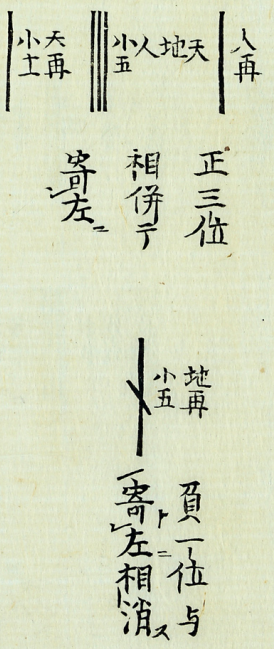 人再
天地人
小五
天再
小士
正三位
相併テ
寄左ニ
地再
小五
負一位与
寄左ニ相消ス